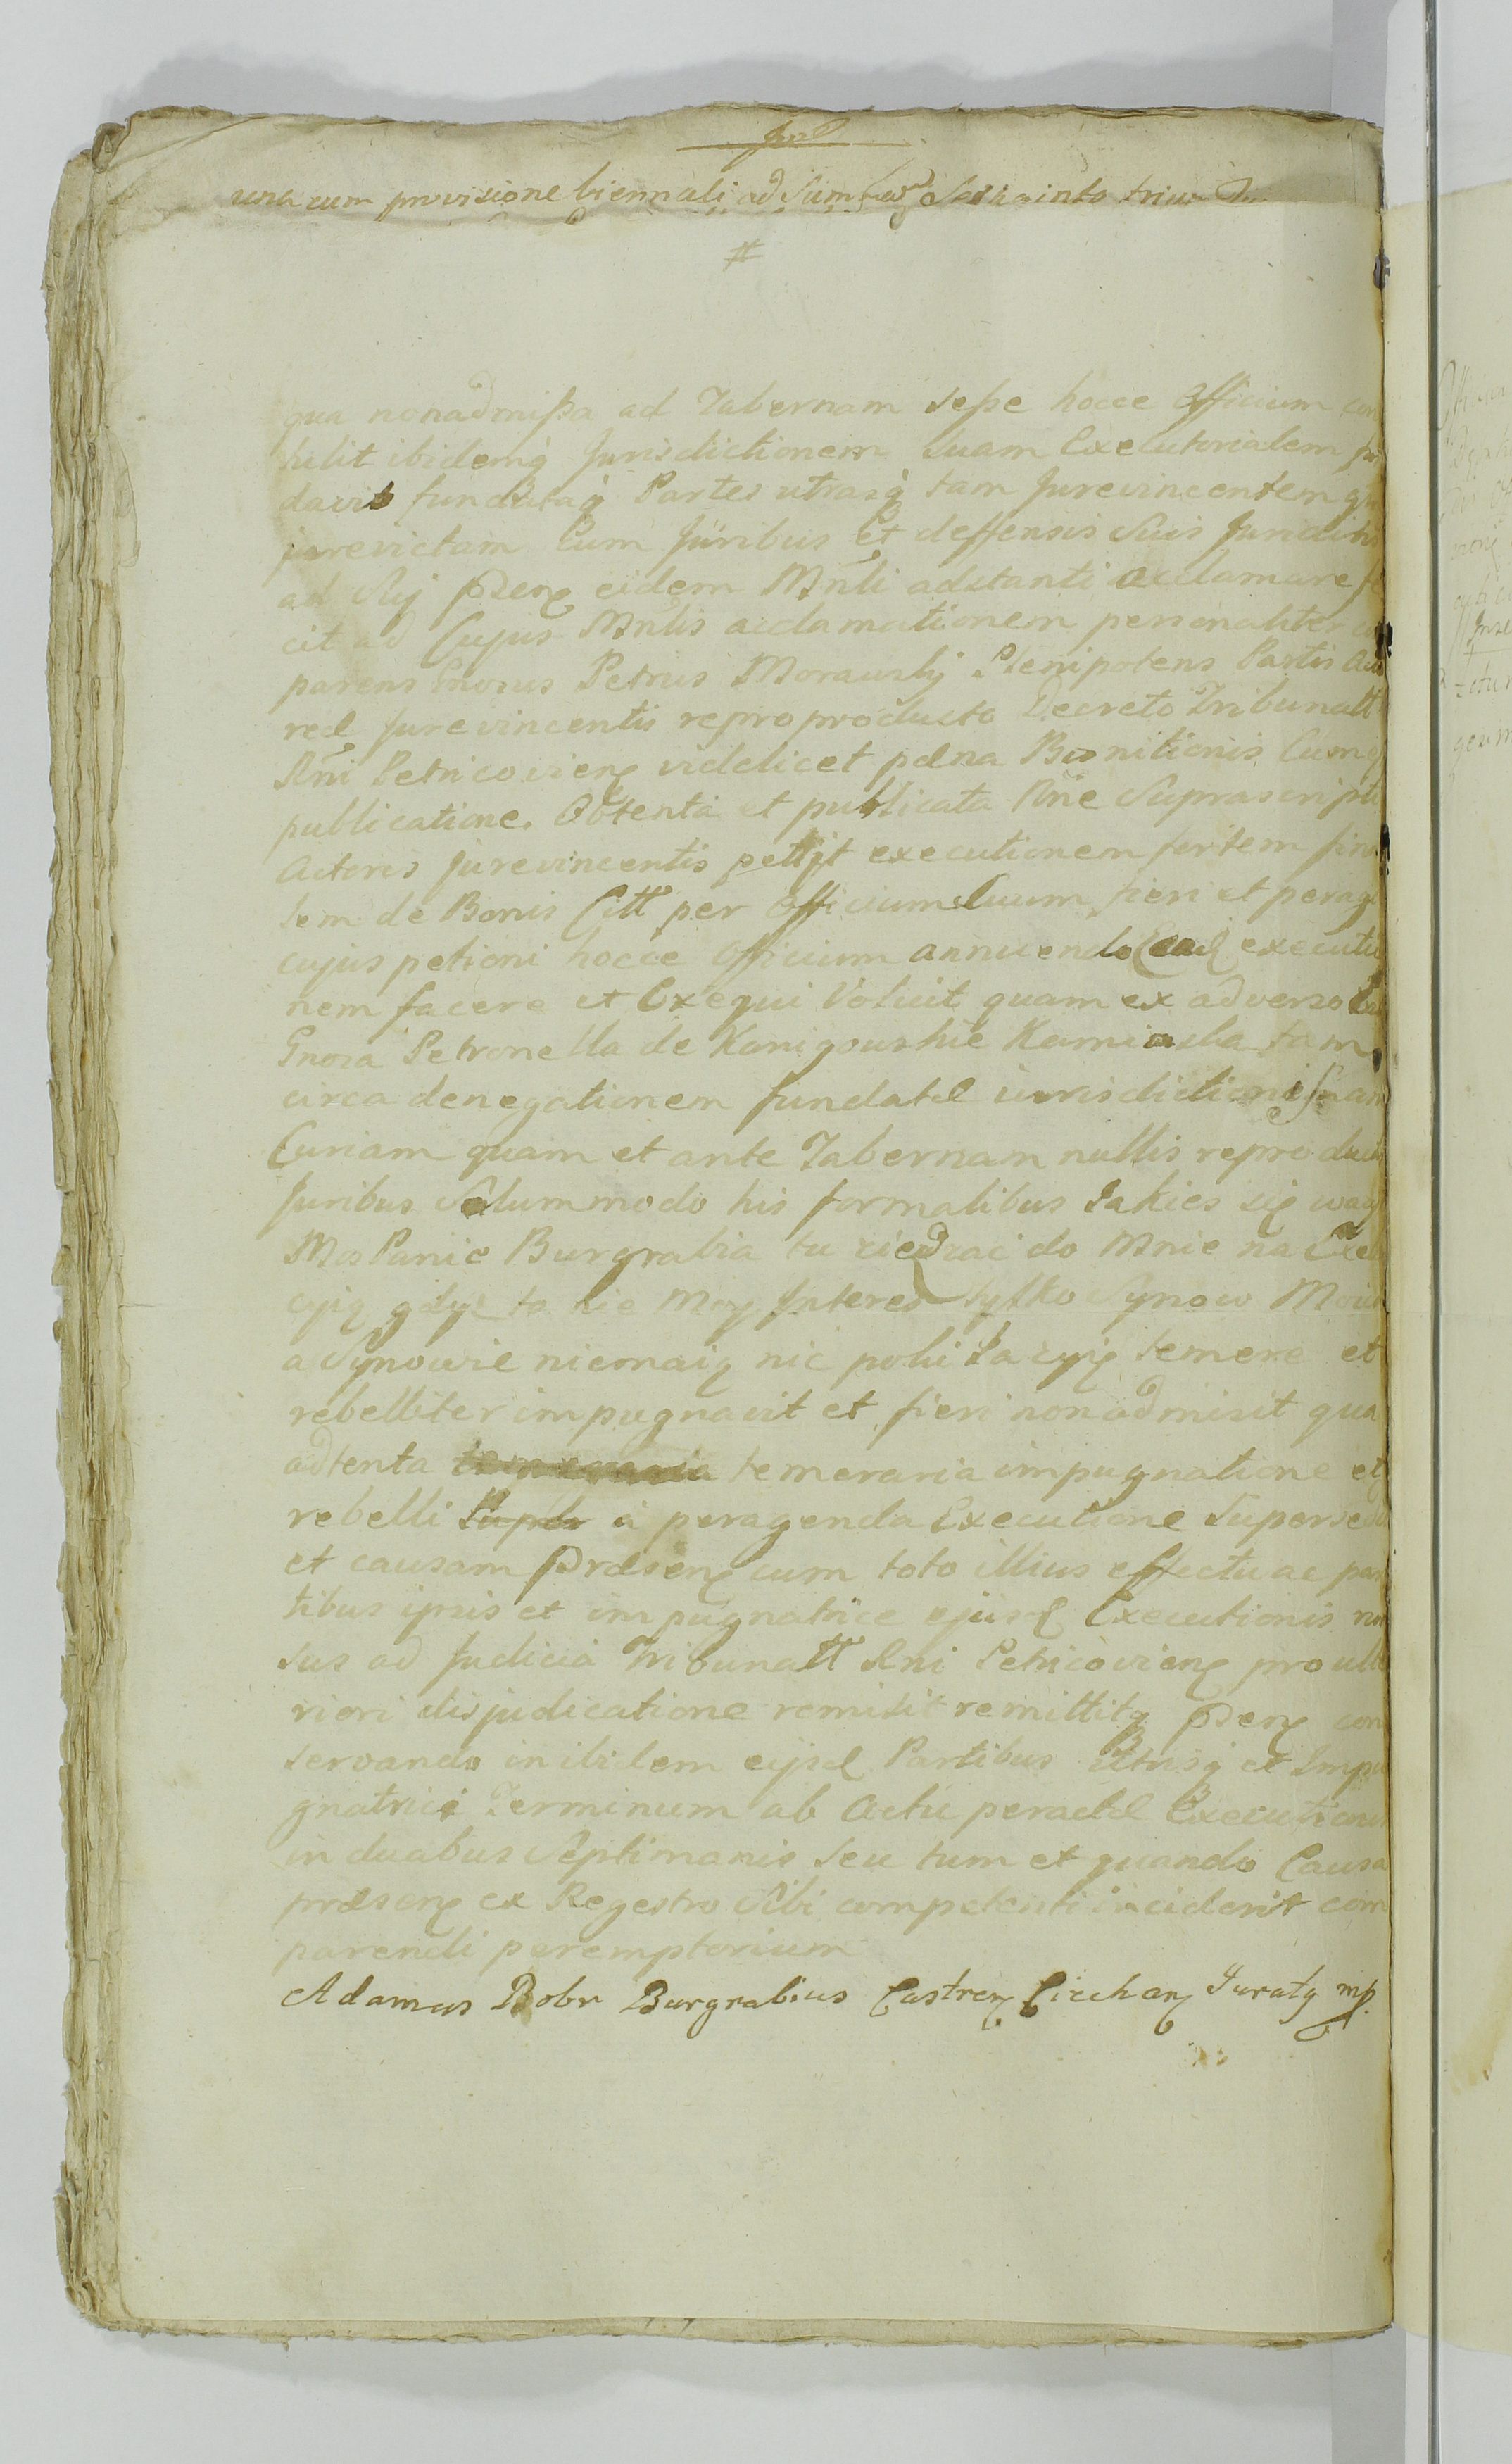 una cum provisione biennali ad Sum
#
qua nonadmißa ad Tabernam seße hocce Officium con
tulit ibidemq Jurisdictionem suam Executorialem fun
davit fundataq Partes utrasq tam Jurevincentem
jurevictam Cum Juribus Et deffensis Suis Juriditis
ad Sui eidem Mnli adstanti acclamare fe
cit ad Cujus Mnlis acclamationem personaliter
parens Gnosus Petrus Morawskj Plenipotens Partis
Jurevincentis reproproducto Decreto Tribunall
Rni videlicet pæna Bannitionis Cum
publicatione. Obtenta et publicata Rne Suprascripti
Actoris Jurevincentis pettijt executionem fortem
tem de Bonis Citt per Officium Suum fieri et peragi
cujus petioni hocce Officium annuendo Eand executio
nem facere et Exequi Voluit quam ex adverso
Gnosa Petronella de Kanigowskie Kaminska tam
circa denegationem fundatæ iurisdictionis
Curiam quam et ante Tabernam nullis reproductis
Juribus Solummodo his formalibus Jakies się waż
Mos Panie Burgrabia tu ziedzac do Mnie na Exe
cyią gdyż to nie Moy Interes tylko Synow Moich
a Synowie niemaią nic temere et
rebelliter impugnavit et fieri non admisit qua
adtenta temeraria impugnatione et
rebelli à peragenda Executione Supersedit
et causam Præsenę cum toto illius effectu ac par
tibus ipsis et impugnatrice ejusd Executionis rur
sus ad Judicia Tribunall Rni pro ulte
riori disjudicatione remisit remittitq con
servando inibidem Partibus utrisq et Impu
gnatrici Terminum ab Actu peractæ Executionis
in duabus Septimanis seu tum et quando Causa
præsenę ex Regestro Sibi competenti inciderit com
parendi peremptorium
Adamus Bobr Burgrabius Castrenę Ciechanę Juratq mp.